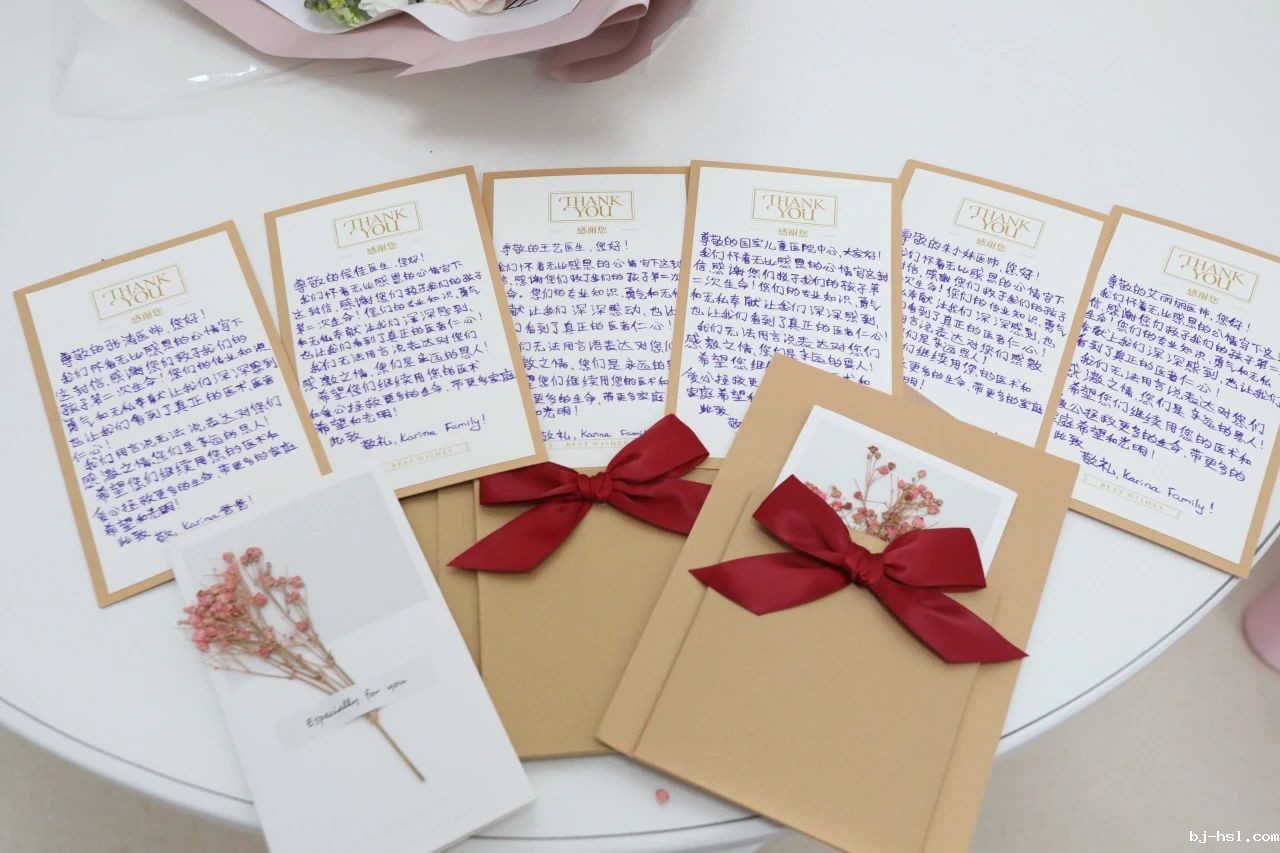 THANK
YOU
感谢您
尊敬的张涛医师,您好!
我们怀着无比感恩的心情写下
这封信,感谢您们救予我们的
孩子第二次生命!您们的专业知识
勇气和无私奉献让我们深深感到
也让我们看到了真正的医术医者
仁心!
我们用言说无法说表达对你们
感激之情,您们是永远的恩人!
希望您们继续用您的医术和
爱心拯救更多的生命,带更多的家庭
希望和光明!
此致 敬礼,Karina爸爸!
THANK
YOU
感谢您
尊敬的侯佳医生,您好!
我们怀着无比感恩的心情写下
这封信,感谢您们救予我们的孩子
第二次生命!您们的专业知识、勇气
和无私奉献让我们深深感到,
也让我们看到了真正的医者仁心!
我们无法用言说表达对您们
感激之情,您们是永远的恩人!
希望您们继续用您的医术
和爱心拯救更多的生命,带更多家庭
希望和光明!
此致
敬礼,Karina Family!
BEST WISHES
THANK
YOU
感谢您
尊敬的王艺医生,您好!
我们怀着无比感恩的心情写下这封
信,感谢您们救予我们的孩子第二次
生命。您们的专业知识、勇气和无私
奉献让我们深深感动,也
让我们看到了真正的医者仁心!
我们无法用言语表达对您们
感激之情,您们是永远的恩
希望您们继续用您的医术和
爱心拯救更多的生命,带更多家庭
希望和光明!
敬礼,Karina Family
BEST WISHES
THANK
YOU
感谢您
尊敬的国家儿童医院中心,大家好!
我们怀着无比感恩的心情写这封
信,感谢您们救予我们的孩子第
二次生命!您们的专业知识、勇气
和无私奉献让我们深深感到,
也让我们看到了真正的医者仁心!
我们无法用言说表达对您们
感激之情,您们是永远的恩人!
希望您
爱心拯救
家庭希望
此致
THANK
YOU
感谢您
尊敬的朱小妹医师,您好!
我们怀着无比感恩的心情写下这
封信,感谢您们救予我们的孩子第
二次生命!您们的专业知识、勇气
和无私奉献让我们深深感到,也
让我们看到了真正的医者仁心!
们用言说表达对您们感激
们是永远恩人!
们继续用您的医术和
更多的生命,带更多的家庭
光明!
THANK
YOU
感谢您
尊敬的艾丽丽医师,您好!
我们怀着无比感恩的心情写下
信,感谢您们救予我们的孩子第二次
生命!您们的专业知识、勇气和无私
奉献让我们深深感到,也让我们
看到了真正的医者仁心!
我们无法用言说表达对您们
感激之情,您们是永远的恩人!
希望您们继续用您的医术和
爱心拯救更多的生命,带更多的
家庭希望和光明!
此致
敬礼,Karina Family!
BEST WISHES
Especially for you
bj-hsl.com